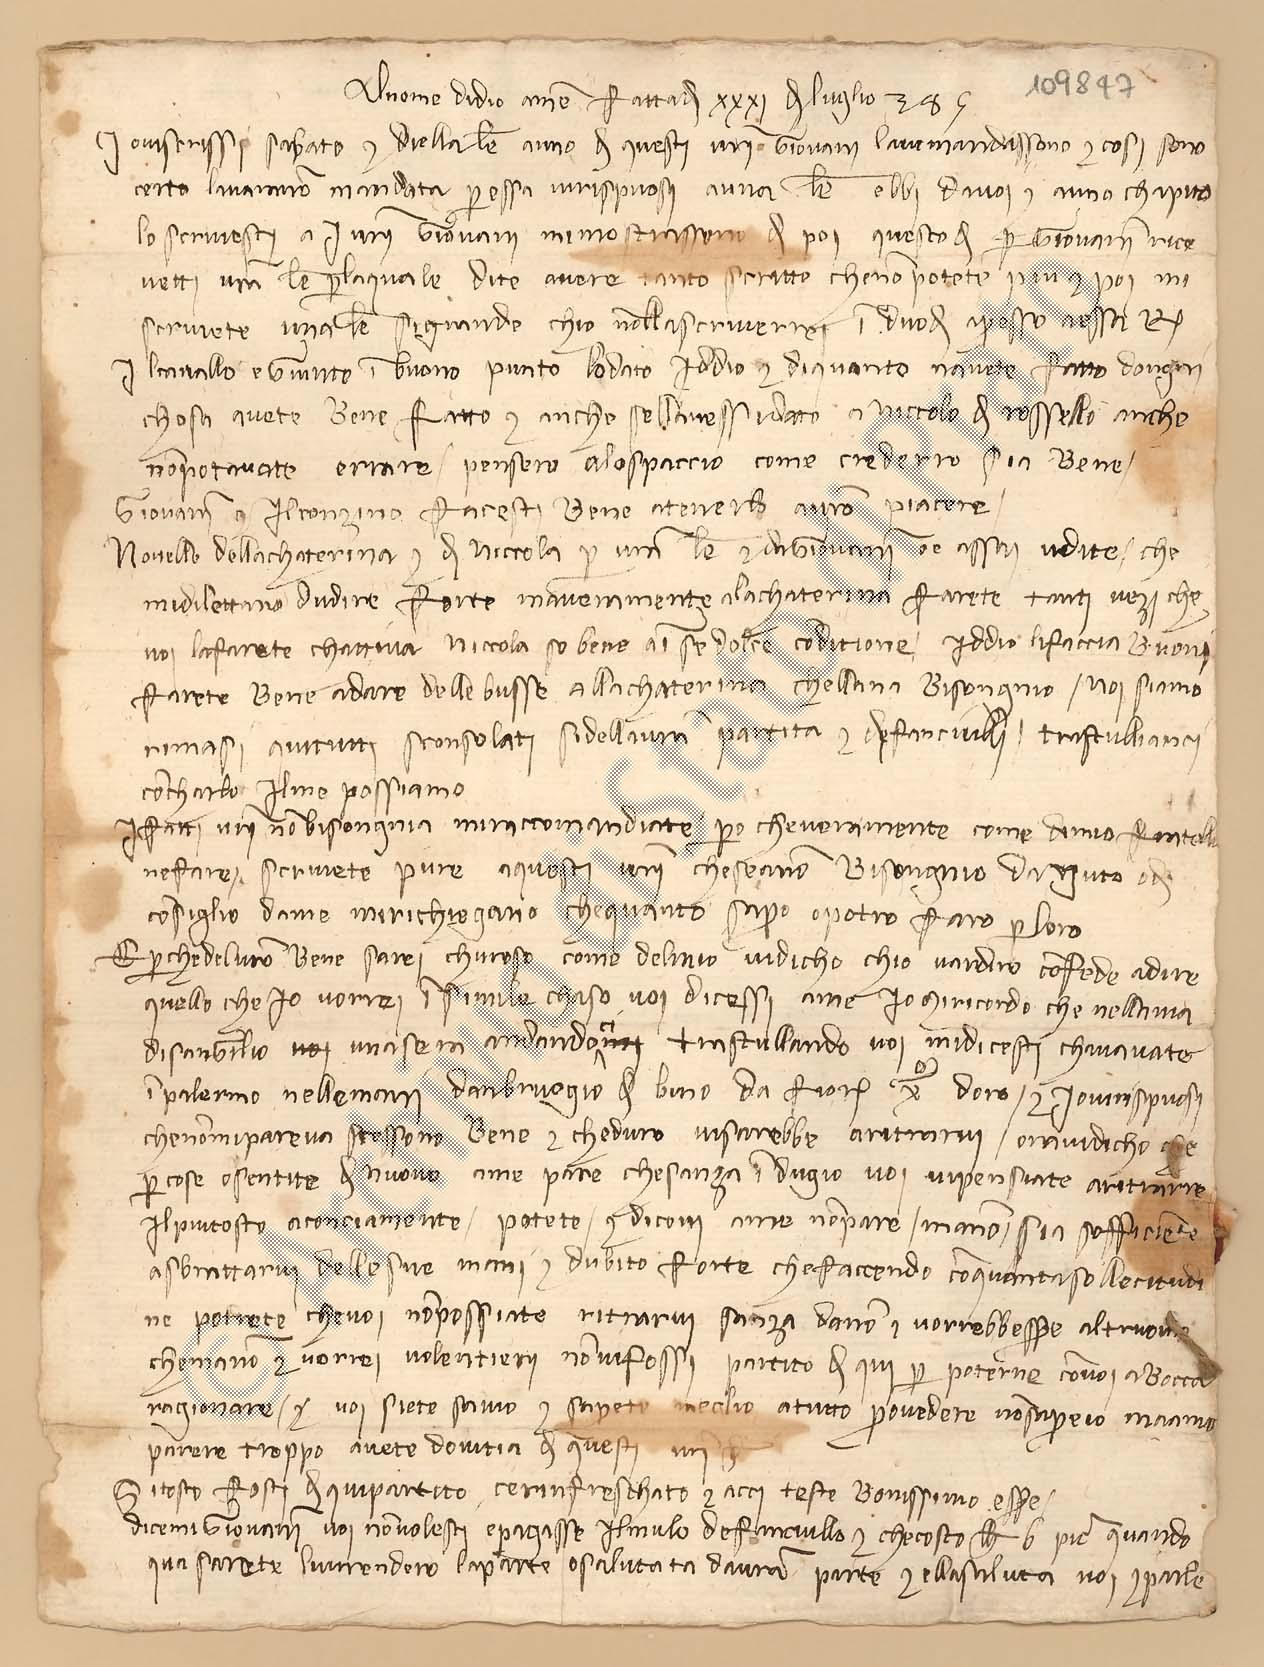 109847
Al nome di dio amē Fatta dì xxxi di luglio 385
Io vi scrissi sabato e diella lē anno di questi vrī giovani lavemandassono e cosi sono
certo lavarano mandata per essa vi rispuosi auna lē ebbi davoi e auno chapito
lo scrivesti a i vrī Giovani mi mostrassono di poi questo dì per Giovanni rice
vetti vrā lē per laquale dite avere tanto scritto che nō potete piu e poi mi
scrivete una lē si grande chio nolla scriverrei ī duo dì apresso aessa R
Il cavallo e giunto ī buono punto lodato Iddio e di quanto navete fatto dongni
chosa avete Bene fatto e anche sellavessi dato a niccolo di rossello anche
nō potavate errare / pensero alo spaccio come crederro sia Bene /
Giovanni e Ilconzino facesti Bene a tenerlo avrō piacere /
Novelle dellachaterina e di Niccola per vrā lē e da Giovanni oe assai udite / che
mi dilettano dudire forte ma veramente alachaterina farete tanti vezi che
voi lafarete chattiva Niccola so bene ai sē dolce cōditione Iddio li faccia Buoni
farete Bene adare delle busse allachaterina chellana Bisongnio / Noi siamo
rimasi quitutti sconsolati si dellavrā partita e de fanciulli / trastullianci
cō charlo Ilme possiamo
I fatti vrī nō bisongnia mi raccomandiate però cheveramente come dimio fratello
ne fare / scrivete pure aquesti vrī che se anō Bisongnio daiuto o di
cōsiglio dame mi richiegano chequanto sapro o potro faro per loro
E perche del vrō Bene sarei churoso come del mio vi dicho chio vardiro cō fede adire
quello che Io vorrei ī simile chaso voi dicessi ame Io mi ricordo che nellavia
di san Gilio una sera andandoci trastullando voi mi dicesti chavavate
ī palermo nelle mani danbruogio di bino da Fior doro / e Io vi rispuosi
che nō mi pareva stessono Bene e cheduro vi sarebbe aritrarvi / ora vi dicho che
per cose o sentite di nuovo ame pare che sanza ī dugio voi vi pensiate aritrarre
Il piutosto aconciamente / potete / e dicovi ame nō pare / manō sia sofficiente
asbrattarvi delle sue mani e dubito forte che faccendo cō quanta sollecitudi
ne potrete che voi nō possiate ritrarvi sanza danō e vorrebbesse altruove
che manō e vorrei volentieri nō vi fossi partito di qui per poterne cō voi a Bocca
ragionare / e voi siete savio e sapete meglio atutto provedere nō saperio ma amio
parere troppo avete dovitia di questi vrī
Si tosto fosti di qui partito cerinfreschato e acci teste Bonissimo esse /
dicemi Giovanni voi nō volesti e pagasse Ilmulo defanciullo e che costo 6 pic quando
qua sarete livi rendero laparte o salutata davrā parte e ella saluta voi e parle